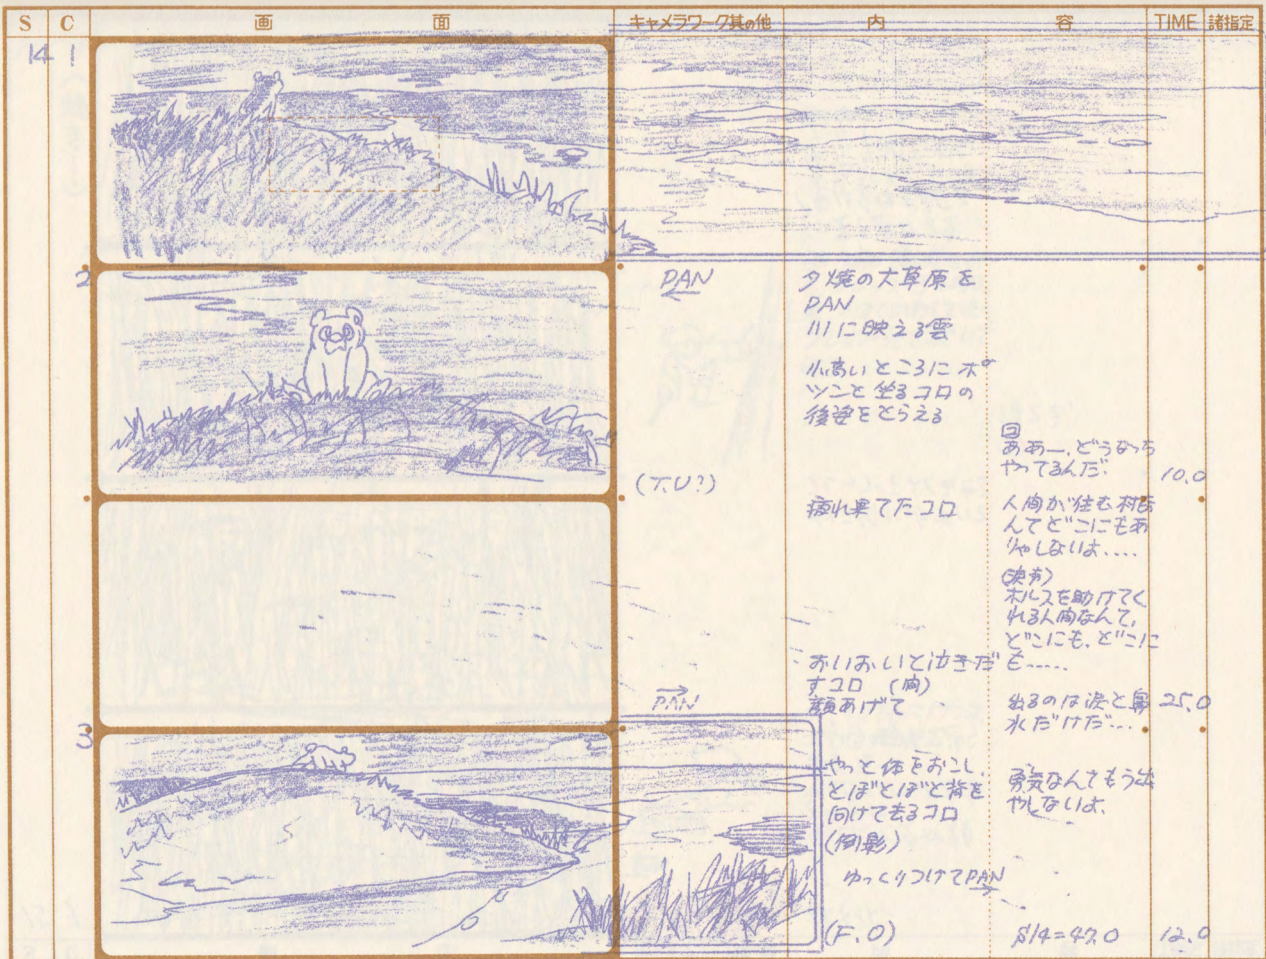 S C 画面 キャメラワーク其の他 内容 TIME 諸指定
14 1
2
PAN
夕焼の大草原を
PAN
川に映える雲
小高いところにポ
ツンと坐るコロの
後姿をとらえる
ああー、どうなっち
やってるんだ。
10.0
(T.U?)
疲れ果てたコロ
人間が住む村な
んてどこにもあ
りゃしないよ、....
ホルスを助けてく
れる人間なんて、
どこにも、どこに
も……
おいおいと泣きだ
すコロ (間)
顔あげて
PAN
出るのは涙と鼻
水だけだ…
25.0
3
やっと体をおこし、
とぼとぼと背を
向けて去るコロ
(倒影)
ゆっくりつけてPAN
勇気なんてもう出
やしないよ、
(F.O)
S14=47.0
12.0